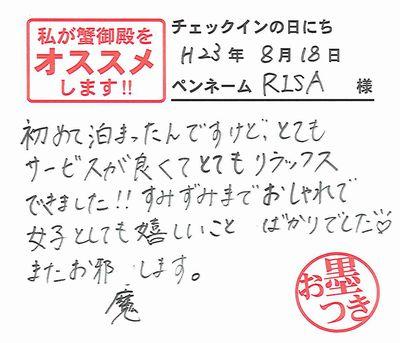 私が蟹御殿を
オススメ
します!!
チェックインの日にち
H23年 8月18日
ペンネーム RISA 様
初めて泊まったんですけど、とても
サービスが良くてとてもリラックス
できました!!すみずみまでおしゃれで
女子としても嬉しいこと ばかりでした♡
またお邪 します。
魔
お墨つき